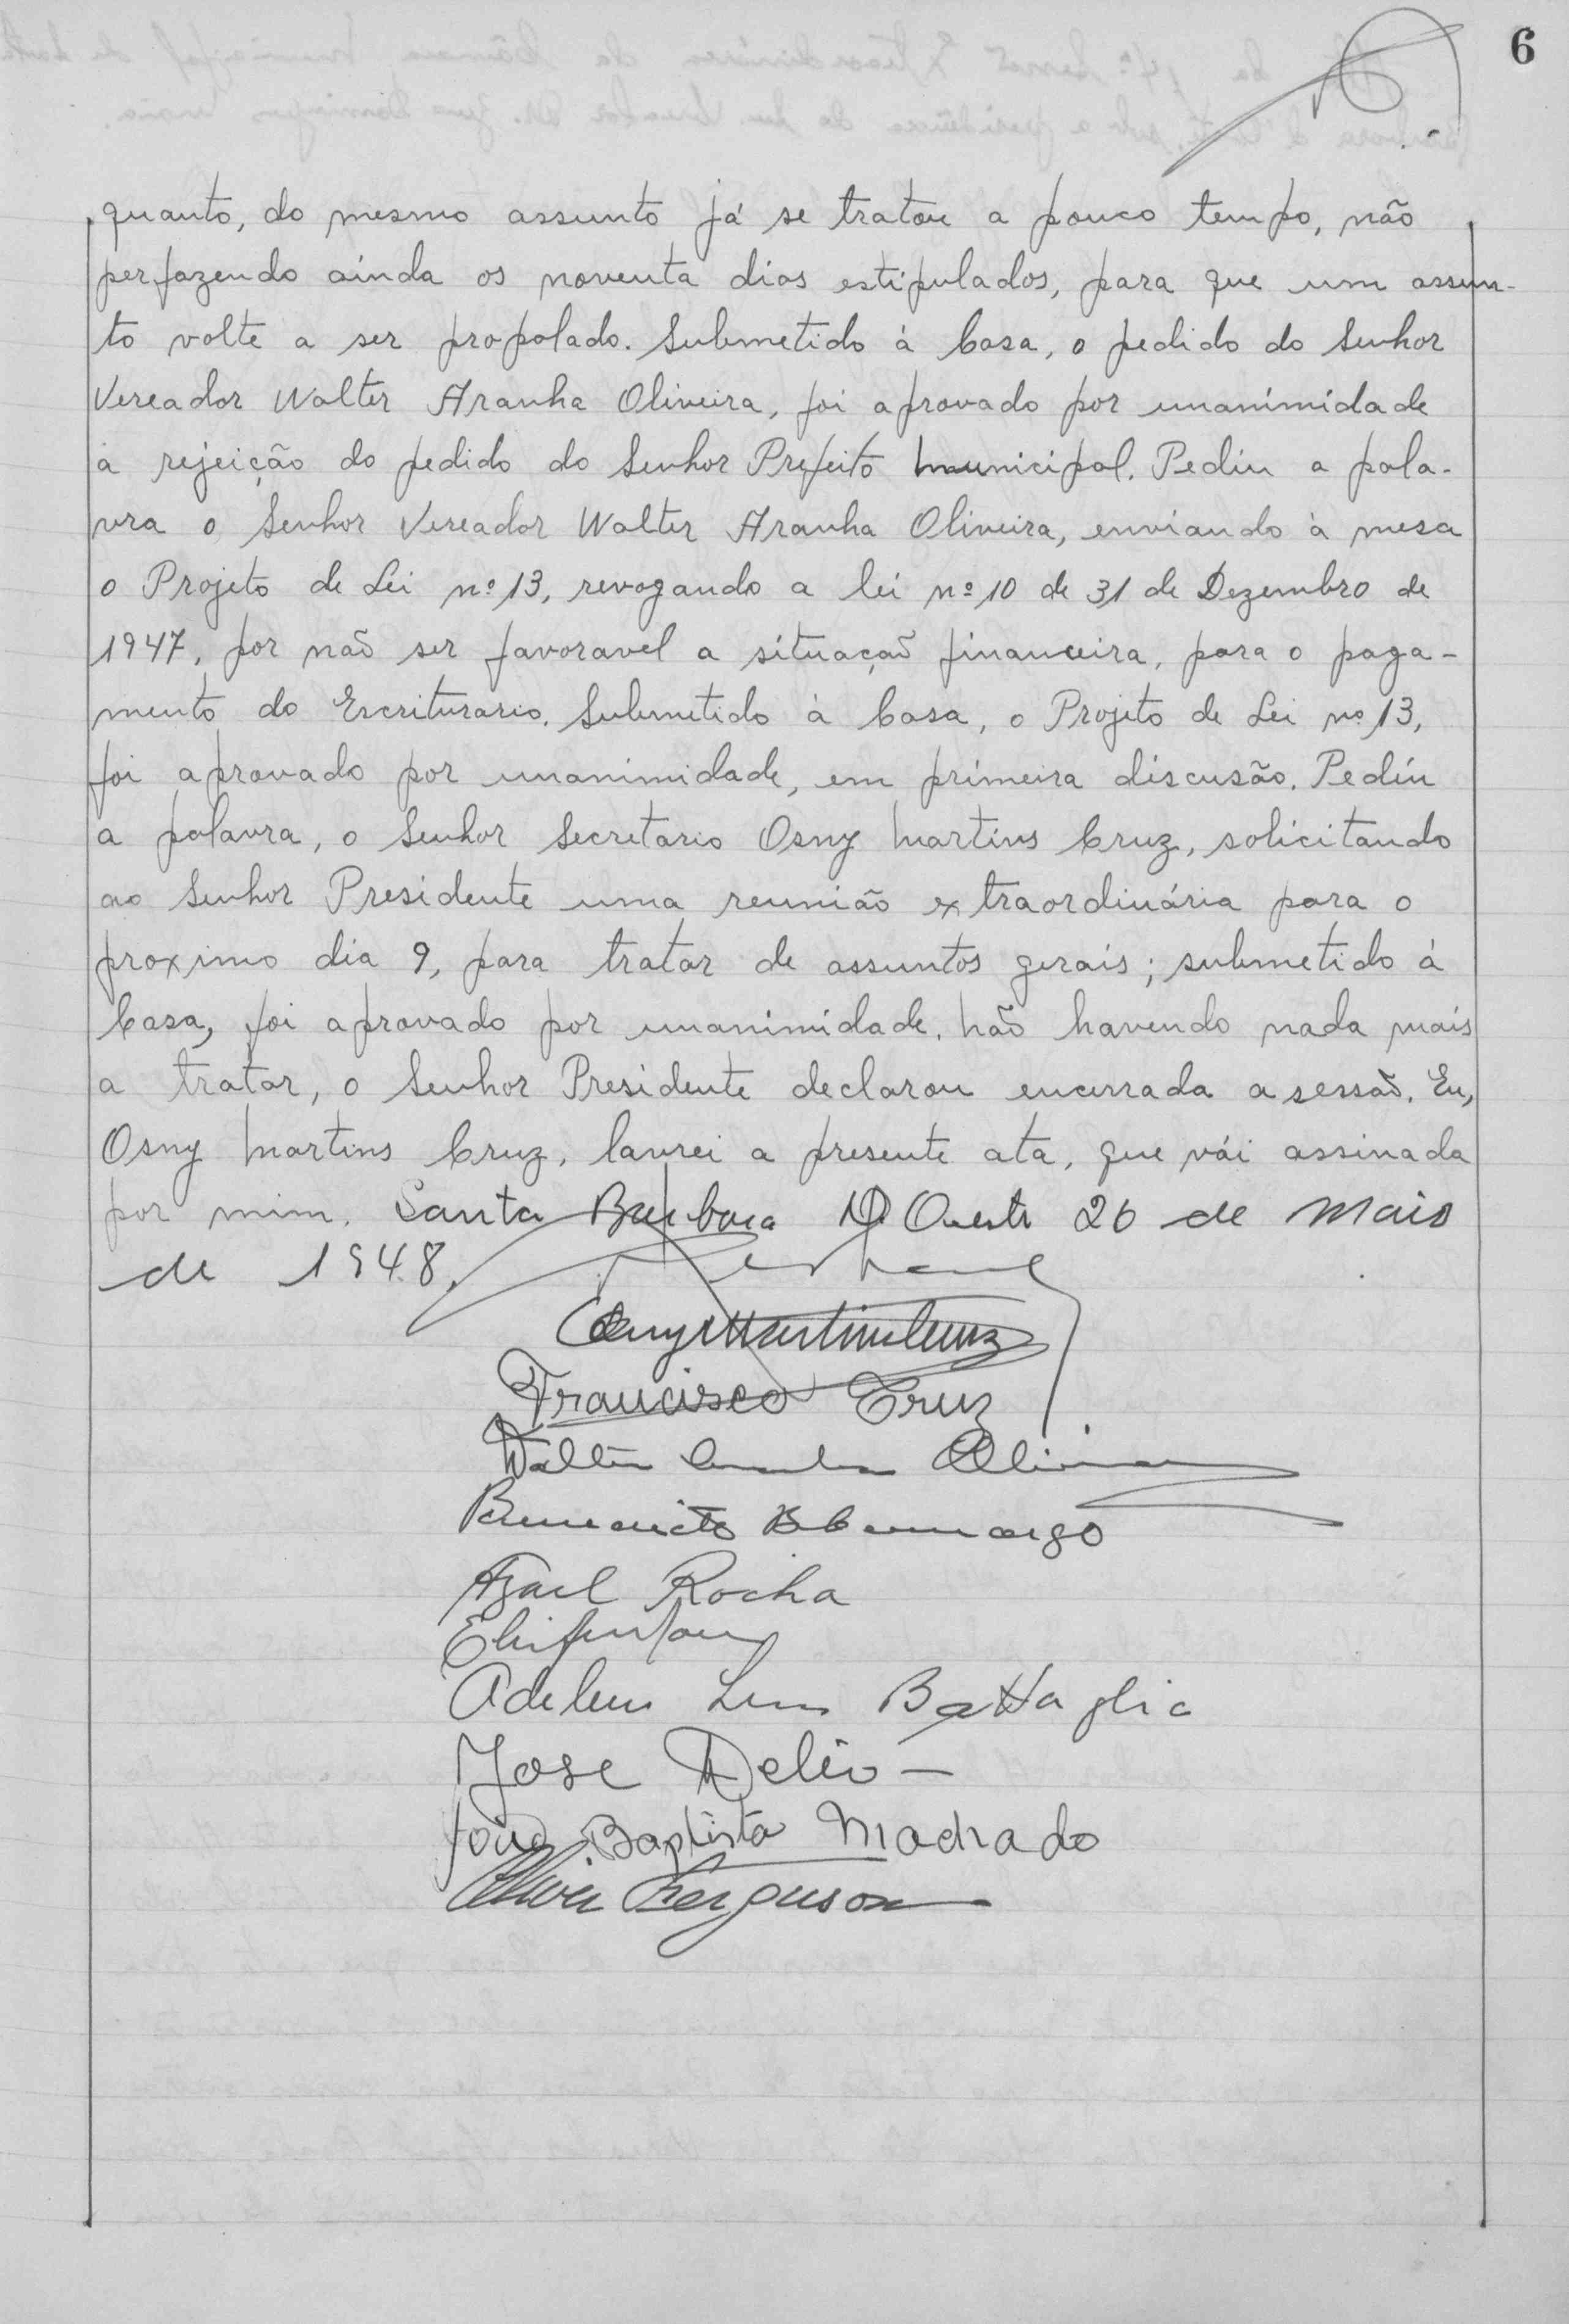 6
quanto, do mesmo assunto já se tratou a pouco tempo, não
perfazendo ainda os noventa dias estipulados, para que um assun-
to volte a ser propolado. Submetido à Casa, o pedido do Senhor
Vereador Walter Aranha Oliveira, foi aprovado por unanimidade
a rejeição do pedido do Senhor Prefeito Municipal. Pediu a pala-
vra o Senhor Vereador Walter Aranha Oliveira, enviando à mesa
o Projeto de Lei nº 13, revogando a lei nº 10 de 31 de Dezembro de
1947, por não ser favoravel a situação financeira, para o paga-
mento do Escriturario. Submetido à Casa, o Projeto de Lei nº 13,
foi aprovado por unanimidade, em primeira discusão. Pediu
a palavra, o Senhor Secretario Osny Martins Cruz, solicitando
ao Senhor Presidente uma reunião extraordinária para o
proximo dia 9, para tratar de assuntos gerais; submetido à
Casa, foi aprovado por unanimidade. Não havendo nada mais
a tratar, o Senhor Presidente declarou encerrada a sessão. Eu,
Osny Martins Cruz, lavrei a presente ata, que vái assinada
por mim. Santa Barbara D Oeste 26 de Maio
de 1948.
Osny Martins Cruz
Francisco Cruz
Walter Aranha Oliveira
Benedicto B Camargo
Azael Rocha
Battaglia
Jose Delio -
João Baptista Machado
Ferguson